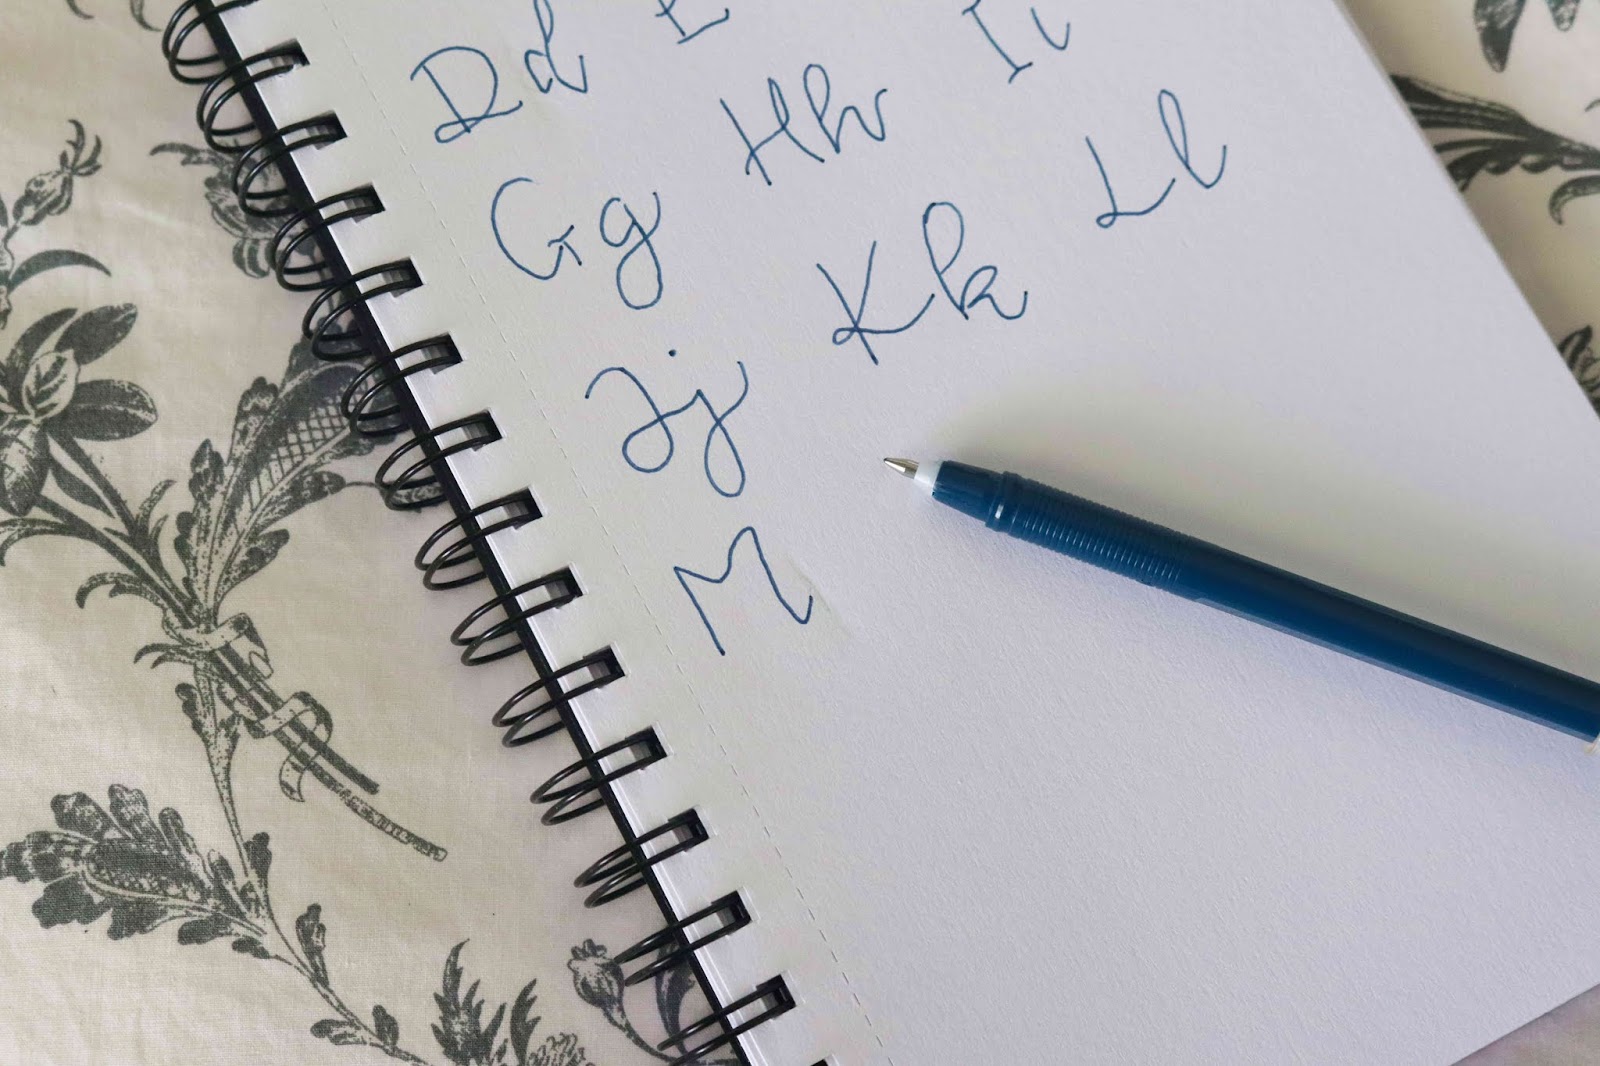 Dd E
Gg Hh Ii
Jj Kk Ll
M